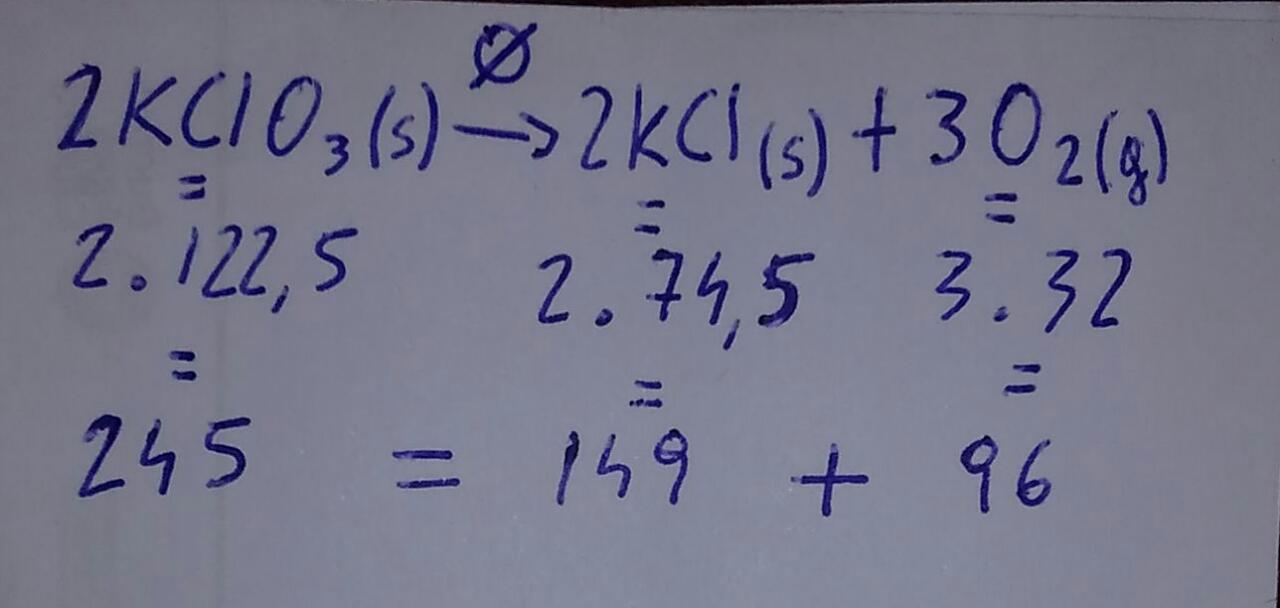 Ø
2KClO₃(s) → 2KCl(s) + 3O₂(g)
= = =
2.122,5 2.74,5 3.32
= = =
245 = 149 + 96